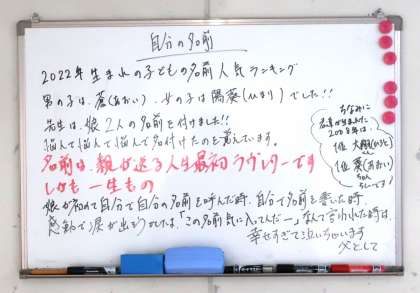 自分の名前
2022年生まれの子どもの名前人気ランキング
男の子は、蒼(あおい)、女の子は陽葵(ひまり)でした!!
先生は、娘2人の名前を付けました!!
悩んで悩んで悩んで名付けたのを覚えています。
名前は、親が送る人生最初ラヴレターです
しかも一生もの
娘が初めて自分で自分の名前を呼んだ時、自分で名前を書いた時、
感動で涙が出そうでしたが、「この名前気に入ってんだー」なんて言われた時は、
幸せすぎて泣いちゃいます
父として
ちなみに
生まれた
2008年は、
1位 大翔(ひろと)
くん
1位 葵(あおい)
ちゃん
らしいです!